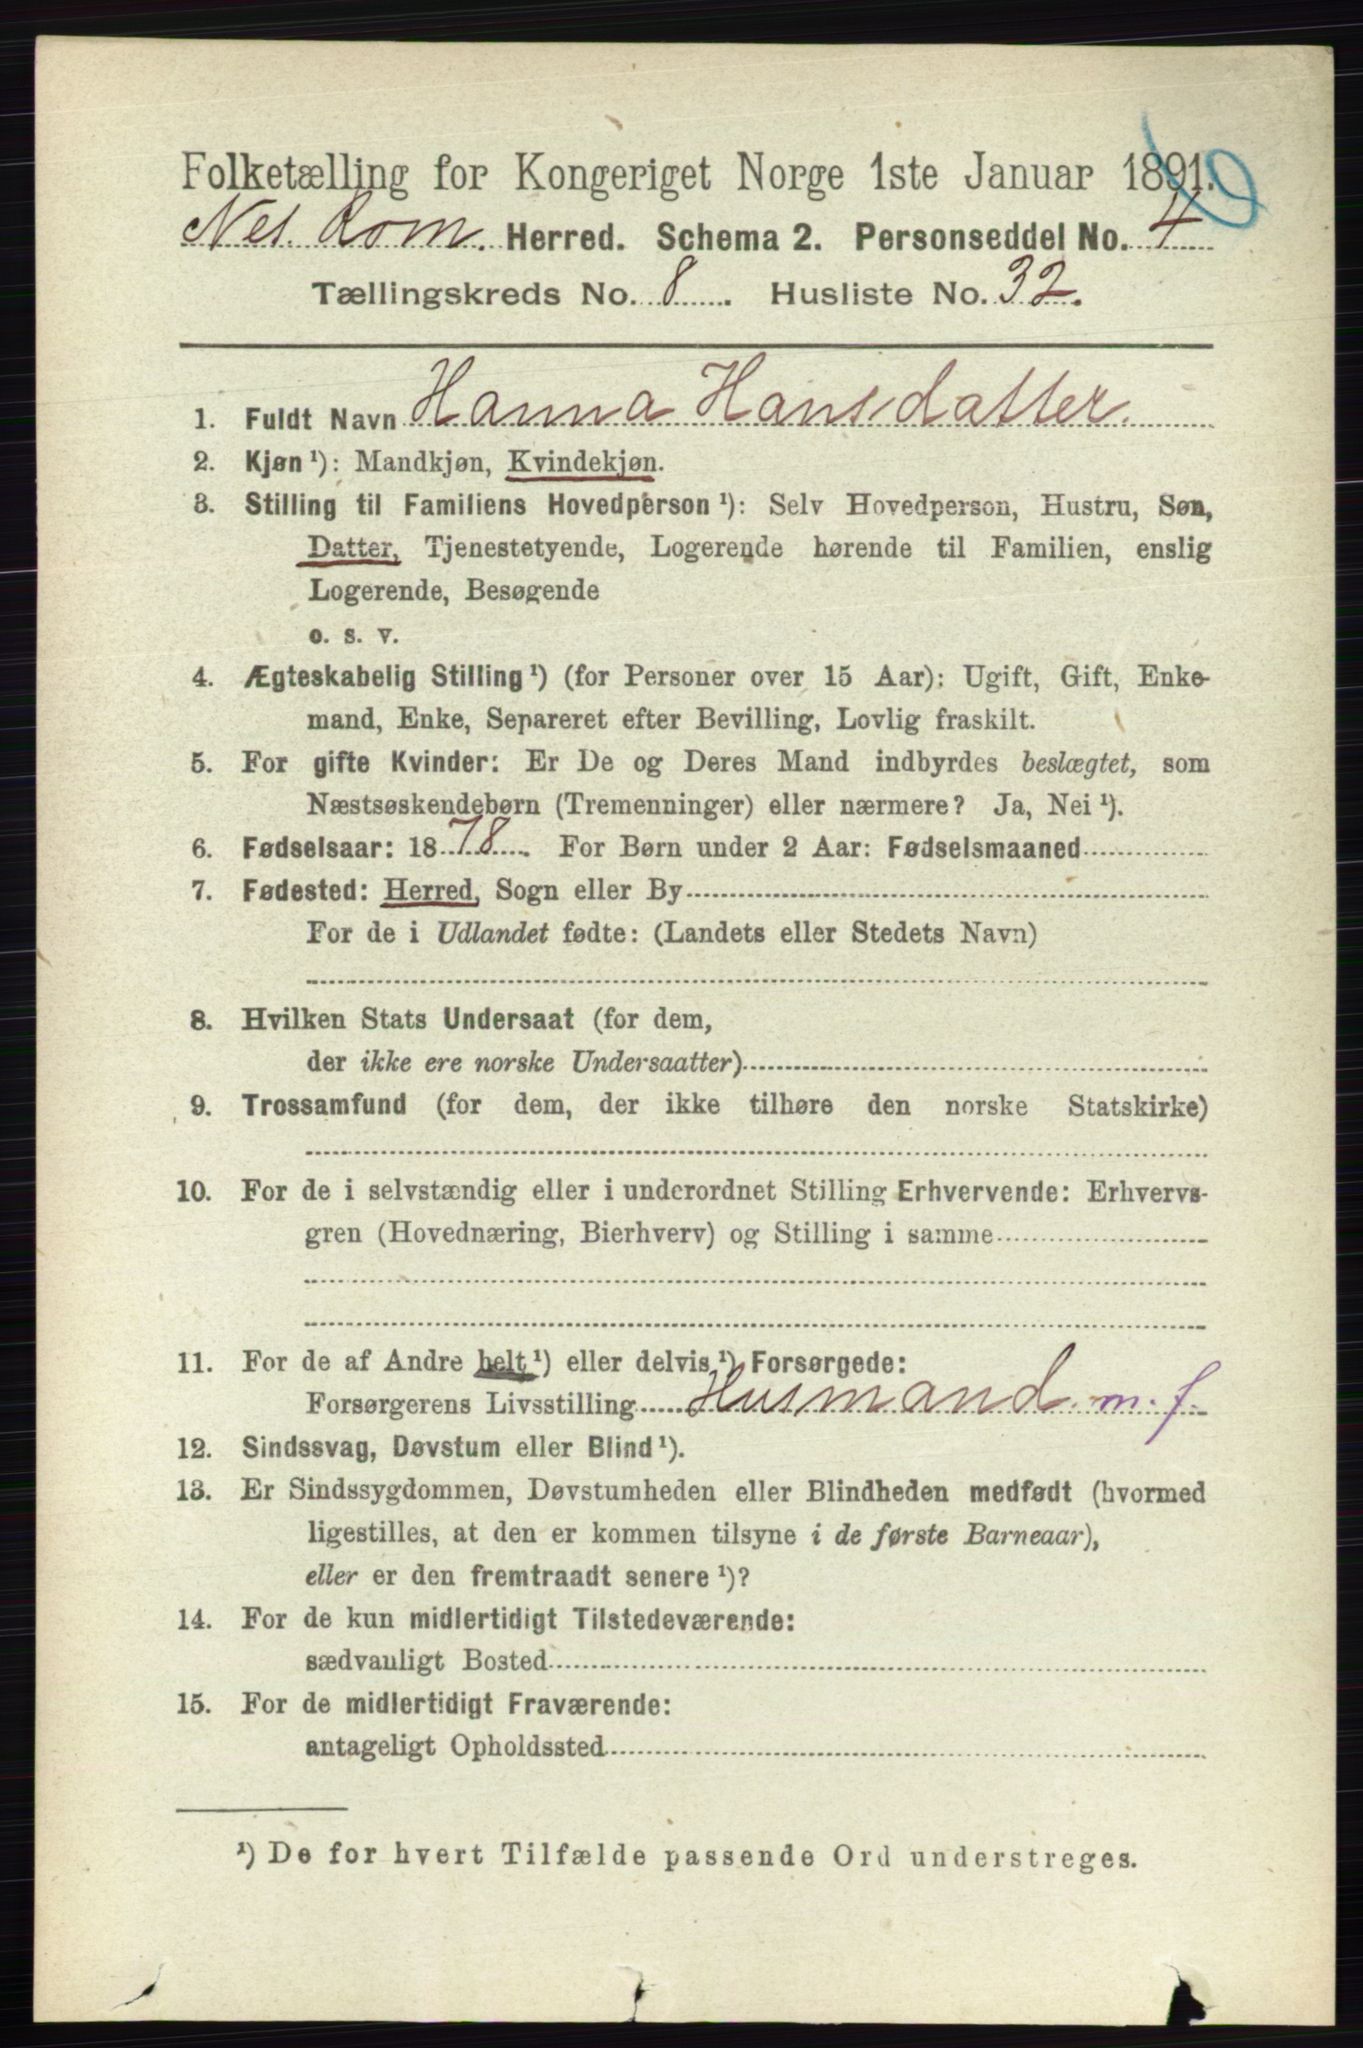 Folketælling for Kongeriget Norge 1ste Januar 1891.
Nes. Rom. Herred. Schema 2. Personseddel No. 4
Tællingskreds No. 8. Husliste No. 32.
1. Fuldt Navn Hanna Hansdatter.
2. Kjøn ¹): Mandkjøn, Kvindekjøn.
3. Stilling til Familiens Hovedperson ¹): Selv Hovedperson, Hustru, Søn,
Datter, Tjenestetyende, Logerende hørende til Familien, enslig
Logerende, Besøgende
o. s. v.
4. Ægteskabelig Stilling ¹) (for Personer over 15 Aar): Ugift, Gift, Enke-
mand, Enke, Separeret efter Bevilling, Lovlig fraskilt.
5. For gifte Kvinder: Er De og Deres Mand indbyrdes beslægtet, som
Næstsøskendebørn (Tremenninger) eller nærmere? Ja, Nei ¹).
6. Fødselsaar: 1878. For Børn under 2 Aar: Fødselsmaaned
7. Fødested: Herred, Sogn eller By
For de i Udlandet fødte: (Landets eller Stedets Navn)
8. Hvilken Stats Undersaat (for dem,
der ikke ere norske Undersaatter)
9. Trossamfund (for dem, der ikke tilhøre den norske Statskirke)
10. For de i selvstændig eller i underordnet Stilling Erhvervende: Erhvervs-
gren (Hovednæring, Bierhverv) og Stilling i samme
11. For de af Andre helt ¹) eller delvis ¹) Forsørgede:
Forsørgerens Livsstilling Husmand. m. f.
12. Sindssvag, Døvstum eller Blind ¹).
13. Er Sindssygdommen, Døvstumheden eller Blindheden medfødt (hvormed
ligestilles, at den er kommen tilsyne i de første Barneaar),
eller er den fremtraadt senere ¹)?
14. For de kun midlertidigt Tilstedeværende:
sædvanligt Bosted
15. For de midlertidigt Fraværende:
antageligt Opholdssted
¹) De for hvert Tilfælde passende Ord understreges.